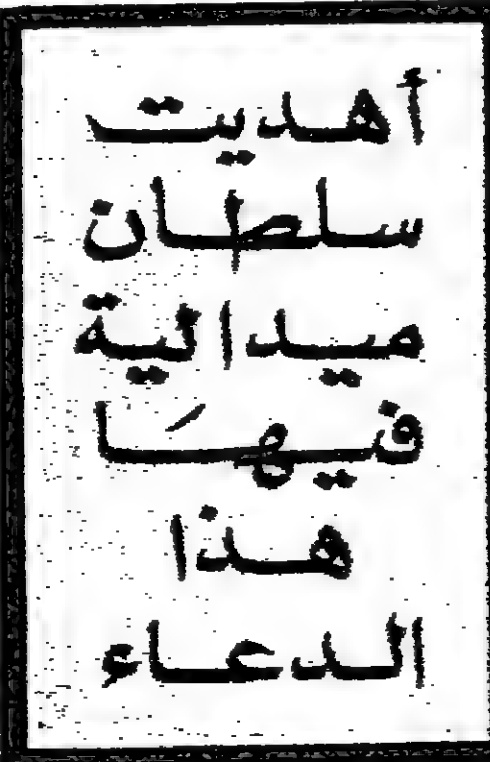 أهديت
سلطان
ميدالية
فيهَا
هذا
الدعاء